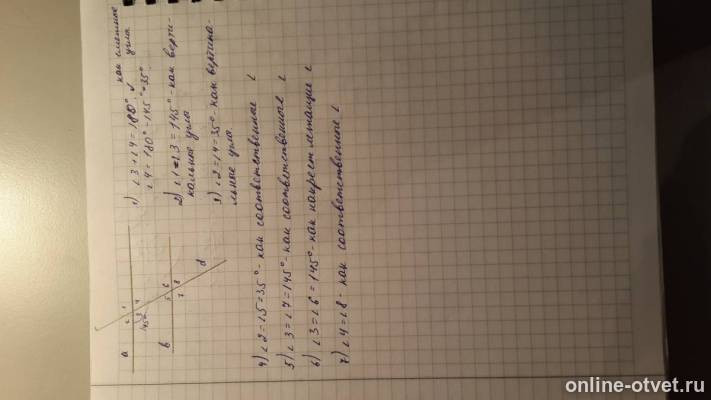 1) ∠3+∠4=180° как смежные
∠4=180°-145°=35° углы
2) ∠1=∠3=145°-как верти-
кальные углы
3) ∠2=∠4=35°-как вертика-
льные углы.
a
2 1
3 4
145°
b
5 6
7 8
d
4) ∠2=∠5=35°-как соответственные ∠
5) ∠3=∠7=145°-как соответственные ∠
6) ∠3=∠6=145°-как накрест лежащие ∠
7) ∠4=∠8-как соответственные ∠
online-otvet.ru